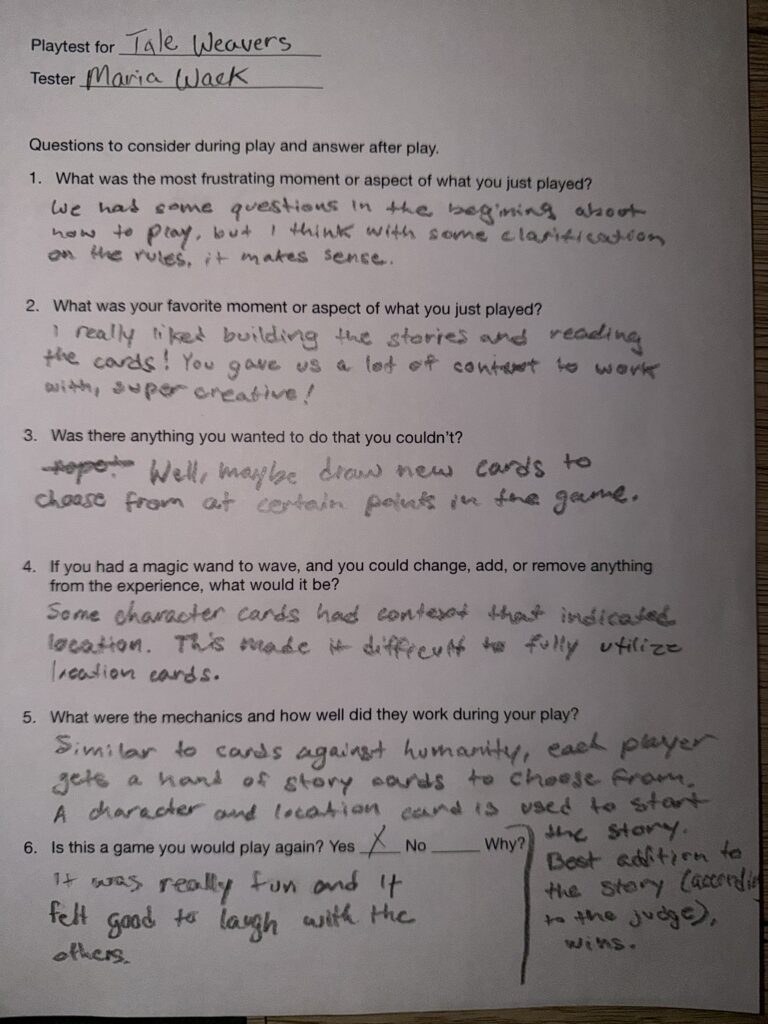 Playtest for Tale Weavers
Tester Maria Waek
Questions to consider during play and answer after play.
1. What was the most frustrating moment or aspect of what you just played?
We had some questions in the begining about
how to play, but I think with some clarification
on the rules, it makes sense.
2. What was your favorite moment or aspect of what you just played?
I really liked building the stories and reading
the cards! You gave us a lot of context to work
with, super creative!
3. Was there anything you wanted to do that you couldn't?
Well, maybe draw new cards to
choose from at certain points in the game.
4. If you had a magic wand to wave, and you could change, add, or remove anything
from the experience, what would it be?
Some character cards had context that indicated
location. This made it difficult to fully utilize
location cards.
5. What were the mechanics and how well did they work during your play?
Similar to cards against humanity, each player
gets a hand of story cards to choose from.
A character and location card is used to start
the story.
Best addition to
the story (accordin
to the judge),
wins.
6. Is this a game you would play again? Yes X No ____ Why?
It was really fun and it
felt good to laugh with the
others.